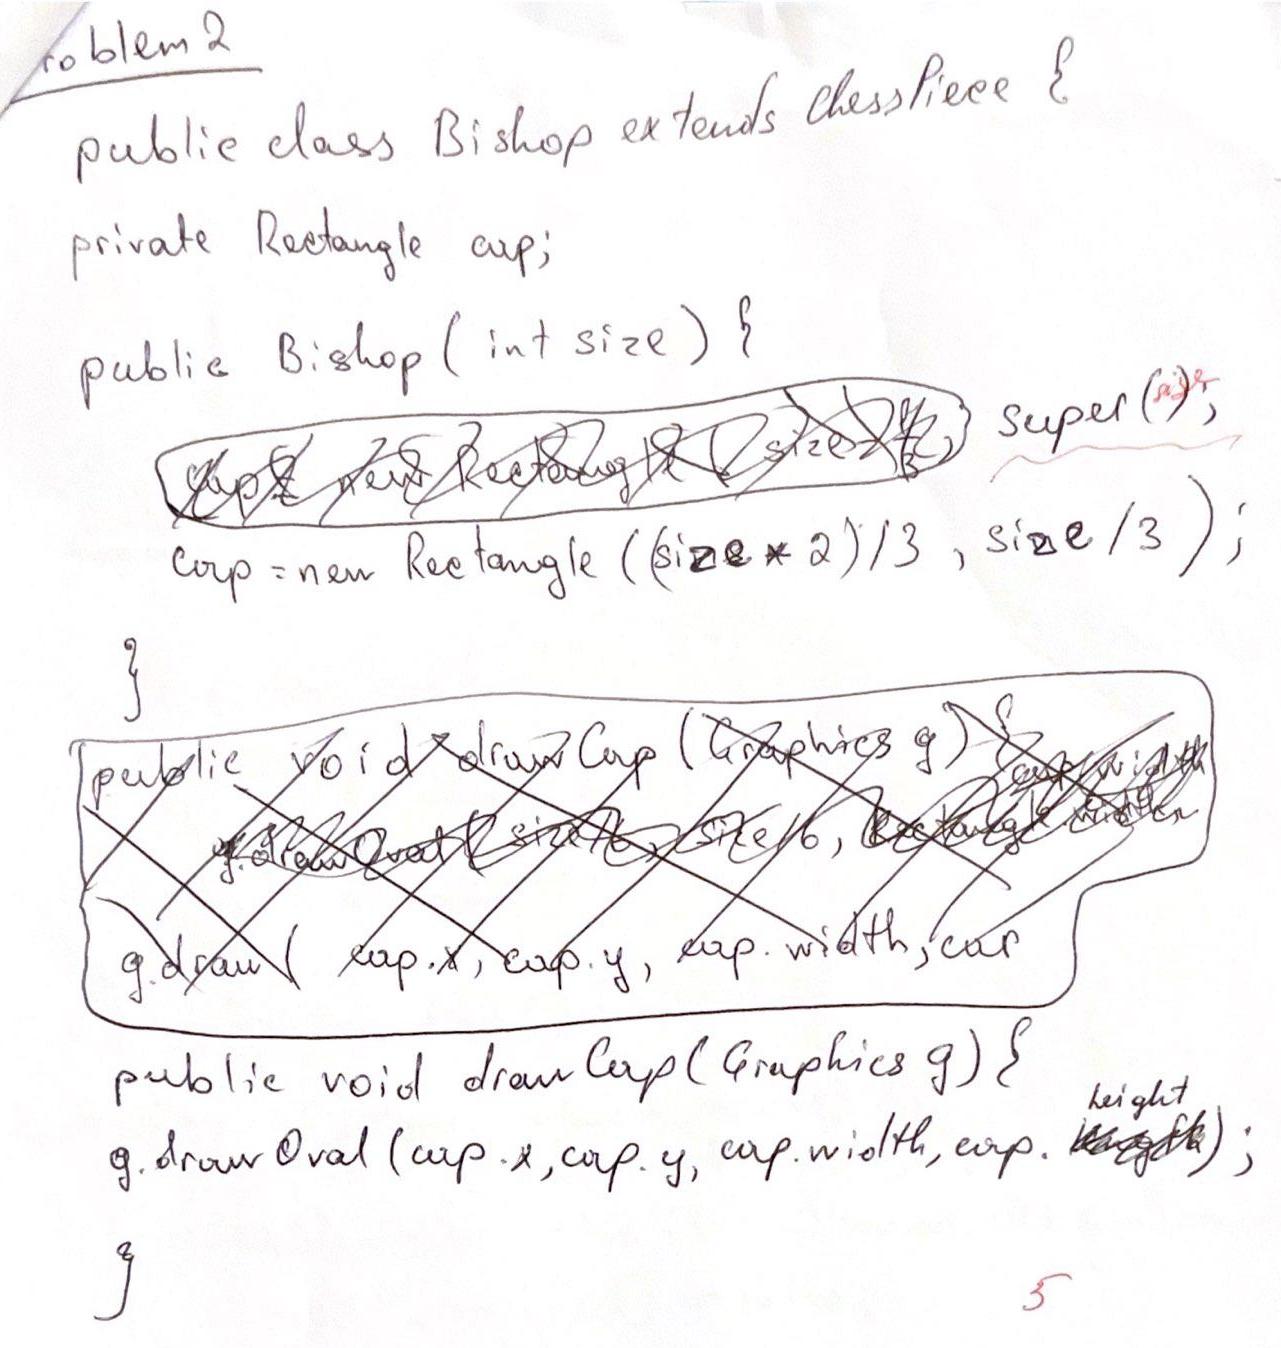 roblem 2
public class Bishop extends ChessPiece {
private Rectangle cap;
public Bishop ( int size ) {
cap = new Rectangle ( size
super (size);
cap = new Rectangle ((size * 2)/3 , size /3 );
}
public void draw Cap (Graphics g) {
cap.width
g.drawOval ( size/6, size/6, Rectangle width
g.draw ( cap.x, cap.y, cap.width, car
public void draw Cap (Graphics g) {
height
g.draw Oval (cap.x, cap.y, cap.width, cap. );
}
5